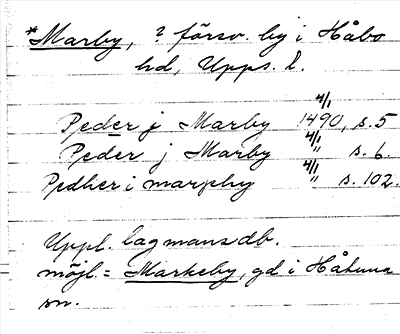 *Marby, ? försv. by i Håbo
hd, Upps. l.
4/1
Peder j Marby 1490, s. 5
4/1
Peder j Marby " s. 6.
4/1
Pedher i markby " s. 102.
Uppl. lagmansdb.
möjl. = Markeby, gd i Håtuna
sn.